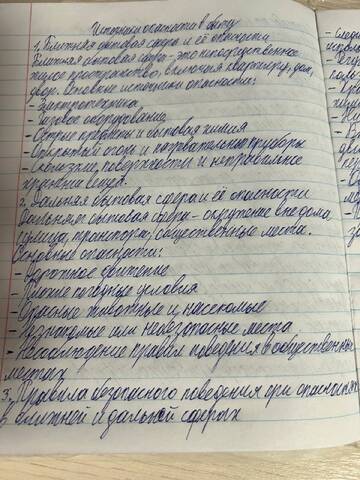 Источники опасности в быту
1. Ближняя бытовая сфера и её опасности
Ближняя бытовая сфера - это непосредственное
жилое пространство, включая квартиру, дом,
двор. Основные источники опасности:
- Электротехника
- Газовое оборудование
- Острые предметы и бытовая химия
- Открытый огонь и нагревательные приборы
- Скользкие поверхности и неправильное
хранение вещей.
2. Дальняя бытовая сфера и её опасности
Дальняя бытовая сфера - окружение вне дома
улица, транспорт, общественные места.
Основные опасности:
- дорожное движение
- Плохие погодные условия
- Опасные животные и насекомые
- Незнакомые или небезопасные места
- Несоблюдение правил поведения в общественных
местах
3. Правила безопасного поведения при опасностях
в ближней и дальней сферах